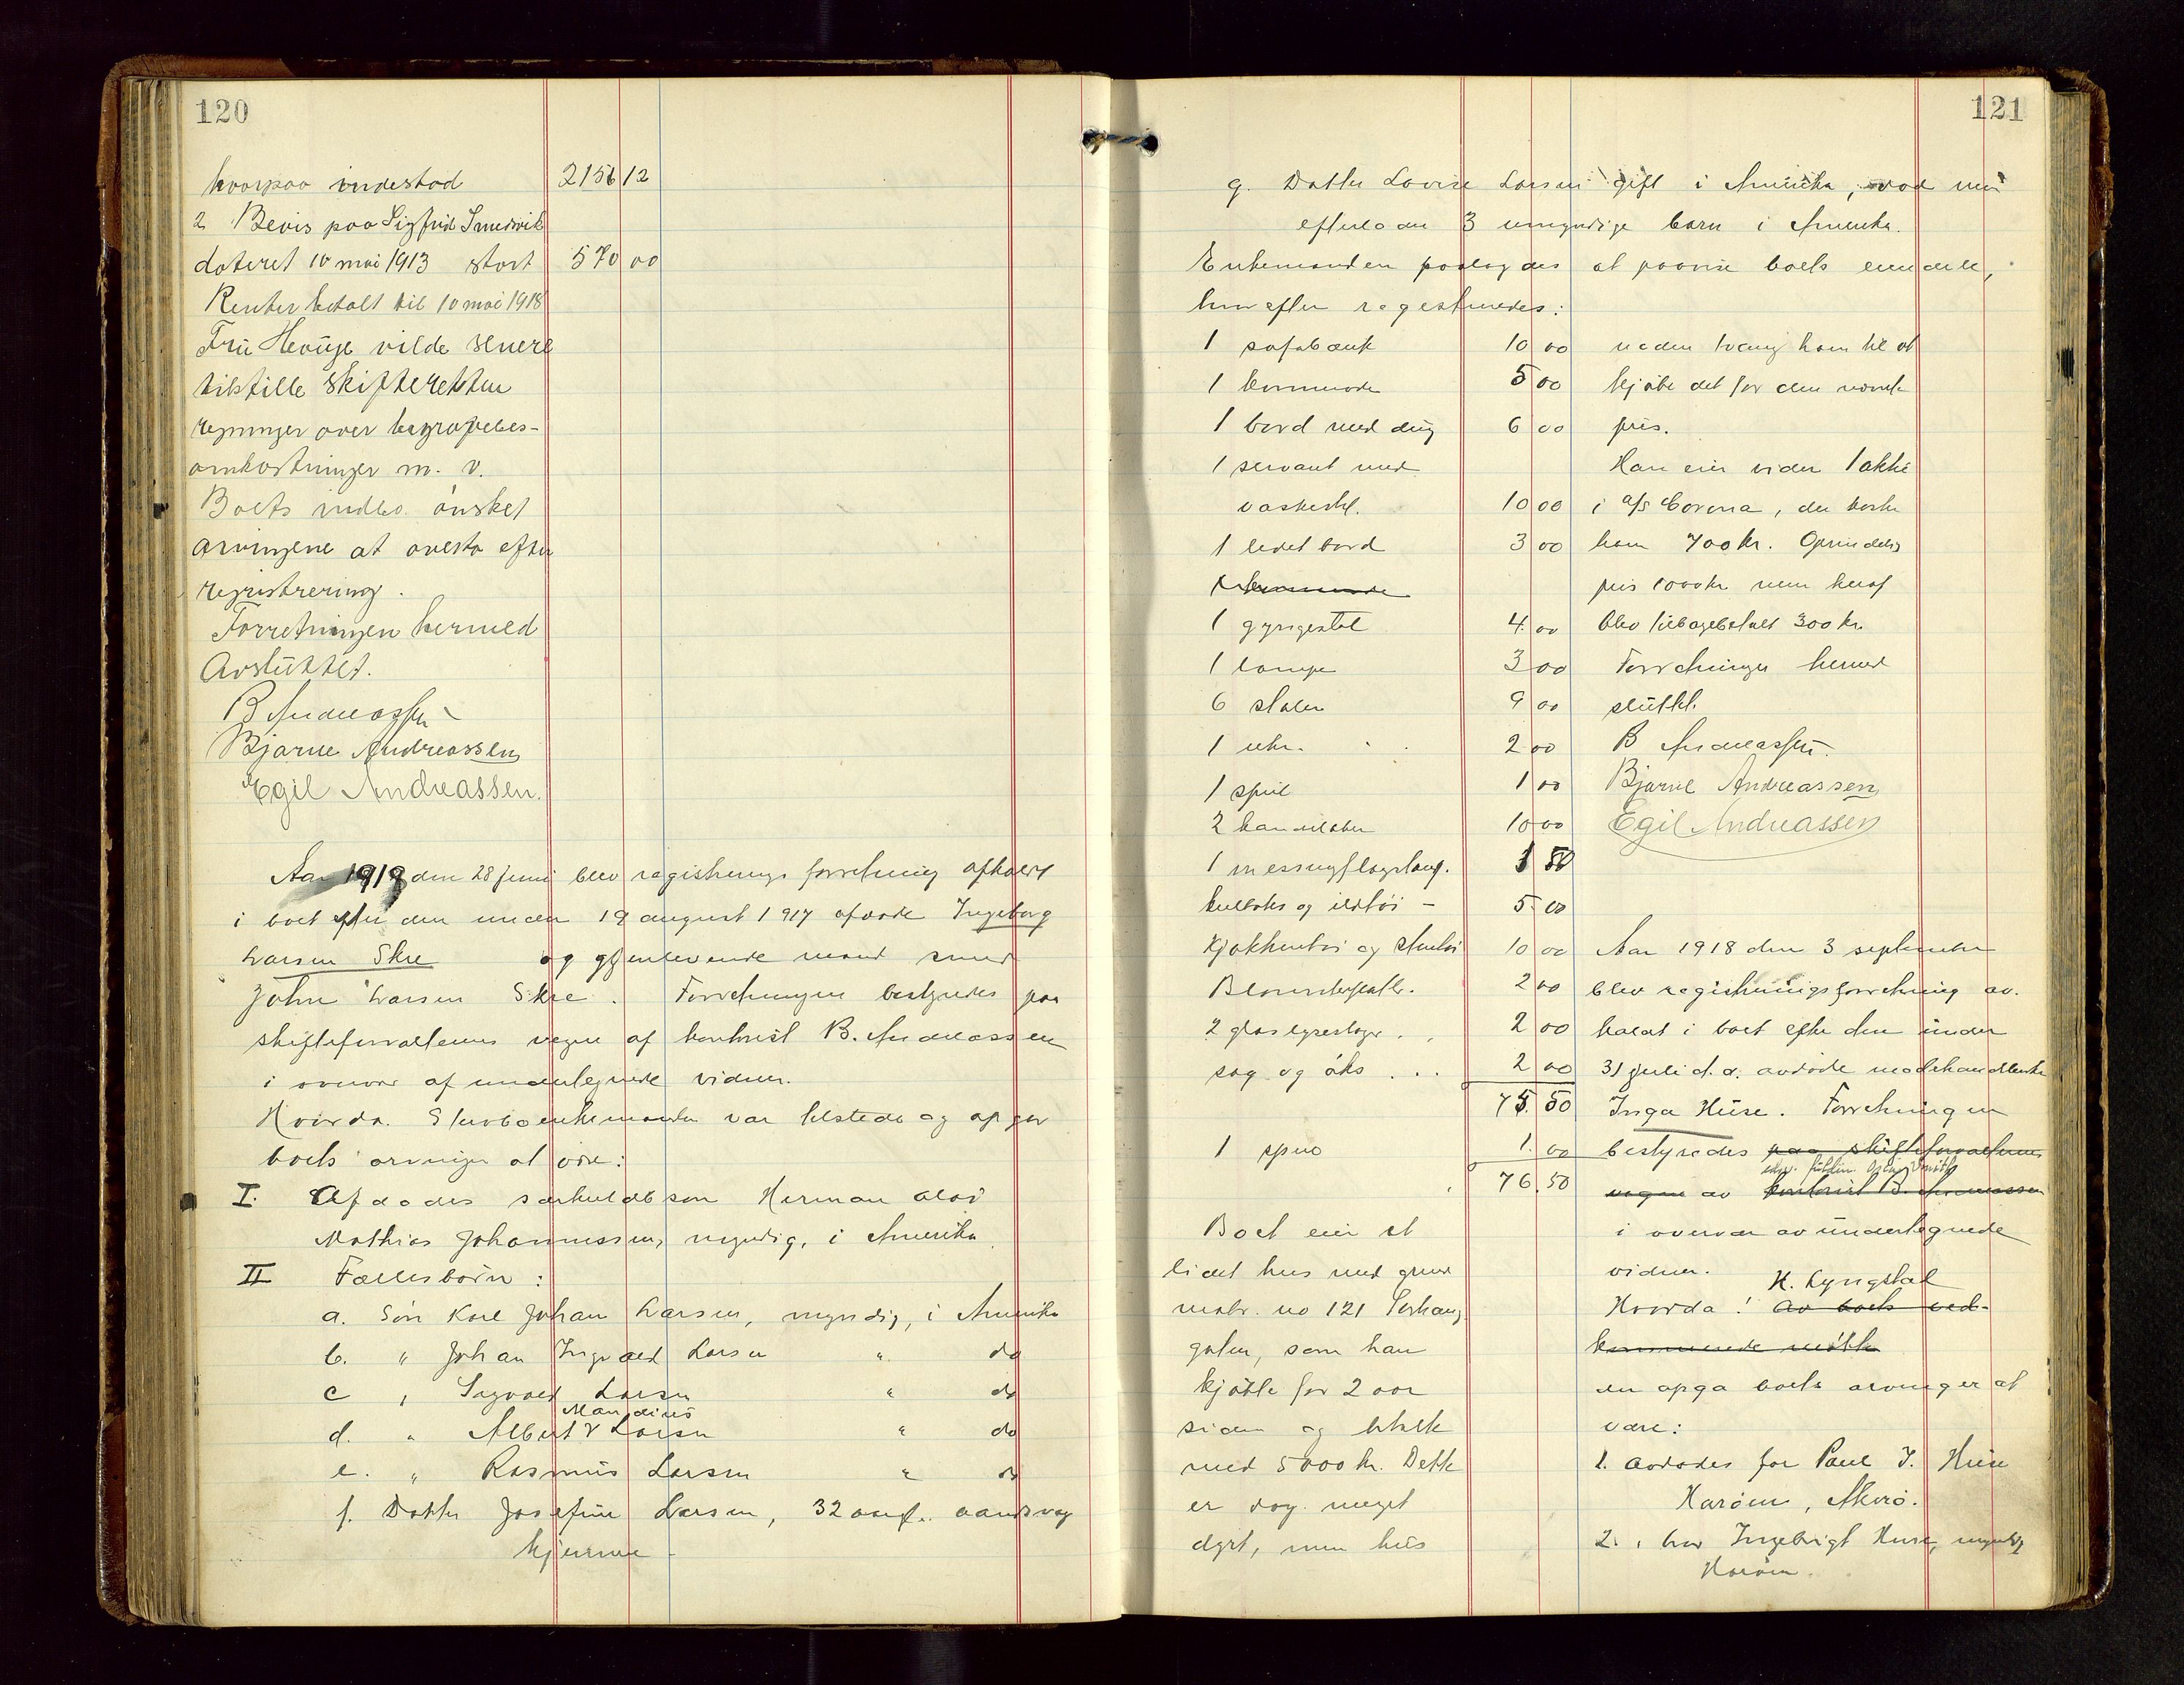 120
hvorpaa indestod 2156 12
2 Bevis paa Sigfrid Smedvik
dateret 10 mai 1913 stort 570 00
Renter betalt til 10 mai 1918
Fru Hauge vilde senere
tilstille skifteretten
regninger over begravelses-
omkostninger m. v.
Boets indbo ønsket
arvingene at overta efter
registrering.
Forretningen hermed
avsluttet.
B Andreassen
Bjarne Andreassen
Egil Andreassen.
Aar 1918 den 28 juni blev registrerings forretning afholdt
i boet efter den under 19 august 1917 afdøde Ingeborg
Larsen Skre og gjenlevende mand smed
John Larsen Skre. Forretningen bestyredes paa
skifteforvalterens vegne af kontorist B. Andreassen
i overvær af undertegnede vidner.
Hvorda. Sterboenkemanden var tilstede og opgav
boets arvinger at være:
I. Afdødes særkuldsbsøn Herman Olai
Mathias Johannessen, myndig, i Amerika
II Fællesbørn:
a. Søn Karl Johan Larsen, myndig, i Amerika
b. " Johan Ingvald Larsen " do
c " Sigvald Larsen " do
Mandius
d. " Albert Larsen " do
e. " Rasmus Larsen " do
f. Datter Josefine Larsen, 32 aar, aandsvag
hjemme
121
g. Datter Lovise Larsen gift i Amerika, død men
efterlader 3 umyndige barn i Amerika.
Enkemanden paalagdes at paavise boets eiendele,
hvorefter registreredes:
1 sofabænk 10 00
1 kommode 5 00
1 bord med dug 6 00
1 servant med
vaskestel. 10 00
1 lidet bord 3 00
1 kommode
1 gyngestol 4 00
1 lampe 3 00
6 stoler 9 00
1 uhr. 2 00
1 speil 1 00
2 kandelaber 10 00
1 messingflagstang. 1 50
kulboks og ildtøi - 5 00
Kjøkkentøi og stentøi 10 00
Blomsterpotter. 2 00
2 glas lysestager. 2 00
sag og øks ... 2 00
75.50
1 speil 1.00
76.50
Boet eier et
lidet hus med grund
matr. no 121
gaten, som han
kjøbte for 2 aar
siden og betalte
med 5000 kr. Dette
er dog meget
dyrt, men hus
nøden tvang ham til at
kjøbe det for den nævnte
pris.
Han eier videre 1 aktie
i a/s Corona, der koster
ham 700 kr. Oprindelig
pris 1000 kr men heraf
blev tilbagebetalt 300 kr.
Forretningen hermed
sluttet.
B Andreassen.
Bjarne Andreassen
Egil Andreassen
Aar 1918 den 3 september
blev registreringsforretning av-
holdt i boet efter den under
31 juli d. a. avdøde modehandlerske
Inga Huse. Forretningen
bestyredes paa skifteforvalterens
vegne av kontorist B. Andreassen
i overvær av undertegnede
vidner.
H. Lyngstad
Hvorda! Av boets ved-
kommende møtte
en opga boets arvinger at
være:
1. avdødes far Paul J. Huse
Harøen, Akerø.
2. " bror Ingebrigt Huse, myndig
Harøen.